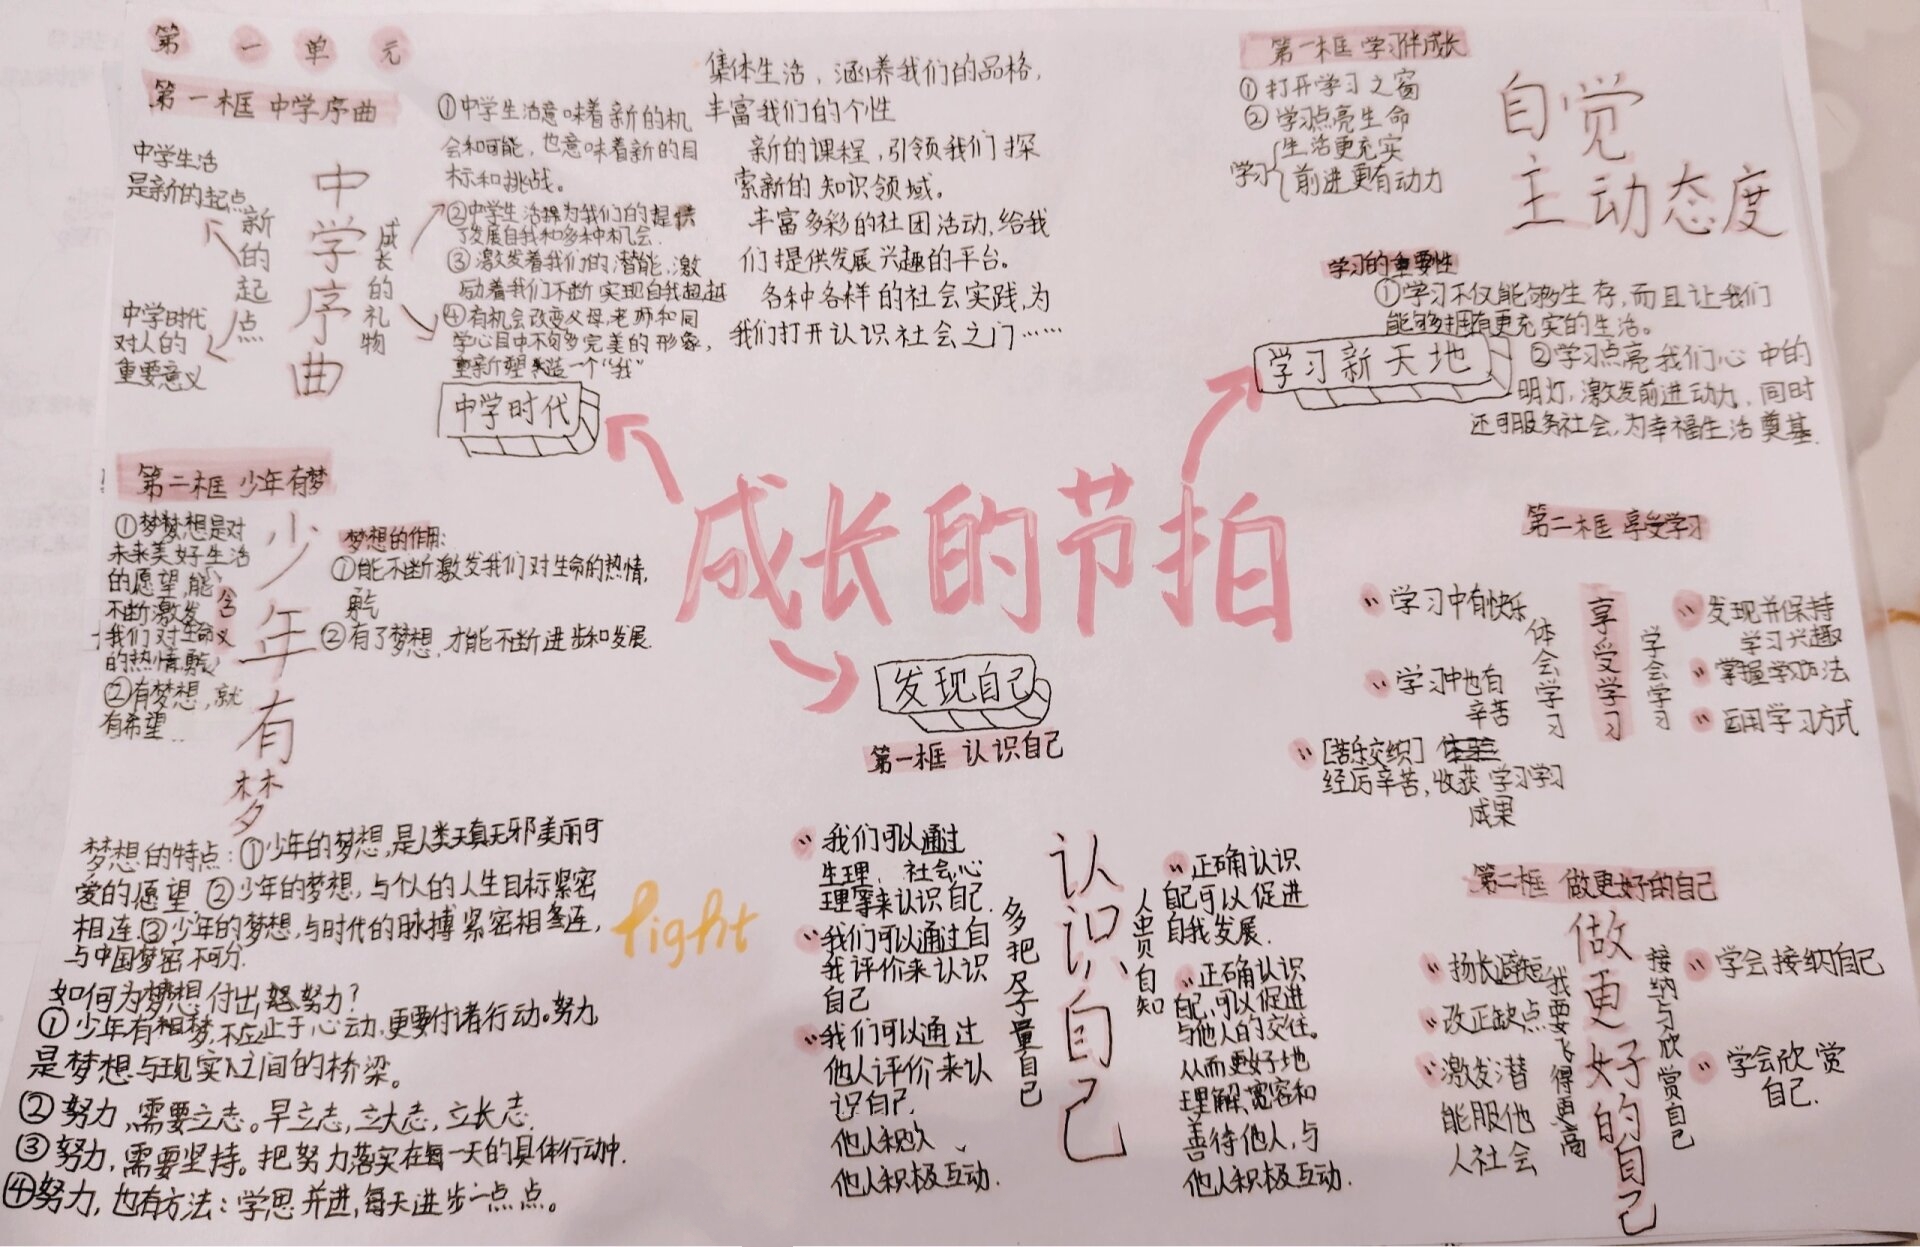 第一单元
第一框 中学序曲
中学生活
是新的起点
新的起点
中学时代
对人的
重要意义
中学序曲
成长的礼物
①中学生活意味着新的机
会和可能，也意味着新的目
标和挑战。
②中学生活为我们的提供
了发展自我和多种机会.
③激发着我们的潜能,激
励着我们不断实现自我超越
④有机会改变父母,老师和同
学心目中不够完美的形象，
重新塑造一个“我”
中学时代
集体生活，涵养我们的品格,
丰富我们的个性
新的课程,引领我们探
索新的知识领域。
丰富多彩的社团活动,给我
们提供发展兴趣的平台。
各种各样的社会实践,为
我们打开认识社会之门……
第一框 学习伴成长
①打开学习之窗
②学习点亮生命
学习
生活更充实
前进更有动力
自觉
主动态度
学习的重要性
①学习不仅能够生存,而且让我们
能够拥有更充实的生活。
学习新天地
②学习点亮我们心中的
明灯,激发前进动力,同时
还可服务社会,为幸福生活奠基.
成长的节拍
第二框 少年有梦
①梦梦想是对
未来美好生活
的愿望,能
不断激发
我们对生命
的热情,勇气
②有梦想,就
有希望
含义
少年有梦
梦想的作用:
①能不断激发我们对生命的热情,
勇气
②有了梦想,才能不断进步和发展.
梦想的特点:①少年的梦想,是人类天真无邪美丽可
爱的愿望 ②少年的梦想,与个人的人生目标紧密
相连③少年的梦想,与时代的脉搏紧密相连,
与中国梦密不可分.
如何为梦想付出努力?
①少年有梦,不应止于心动,更要付诸行动。努力,
是梦想与现实之间的桥梁。
②努力,需要立志。早立志,立大志,立长志.
③努力,需要坚持。把努力落实在每一天的具体行动中.
④努力,也有方法:学思并进,每天进步一点点。
fight
发现自己
第一框 认识自己
我们可以通过
生理、社会、心
理等来认识自己.
我们可以通过自
我评价来认识
自己
我们可以通过
他人评价来认
识自己.
他人积极互动.
多把尺子量自己
认识自己
人贵自知
正确认识
自己可以促进
自我发展.
正确认识
自己,可以促进
与他人的交往。
从而更好地
理解、宽容和
善待他人,与
他人积极互动.
第二框 享受学习
学习中有快乐
学习中也有
辛苦
[苦乐交织]
经历辛苦,收获学习学习
成果
体会学习
享受学习
学会学习
发现并保持
学习兴趣
掌握学习方法
运用学习方式
第二框 做更好的自己
扬长避短
改正缺点
激发潜
能服他
人社会
我要飞得更高
做更好的自己
接纳与欣赏自己
学会接纳自己
学会欣赏
自己.